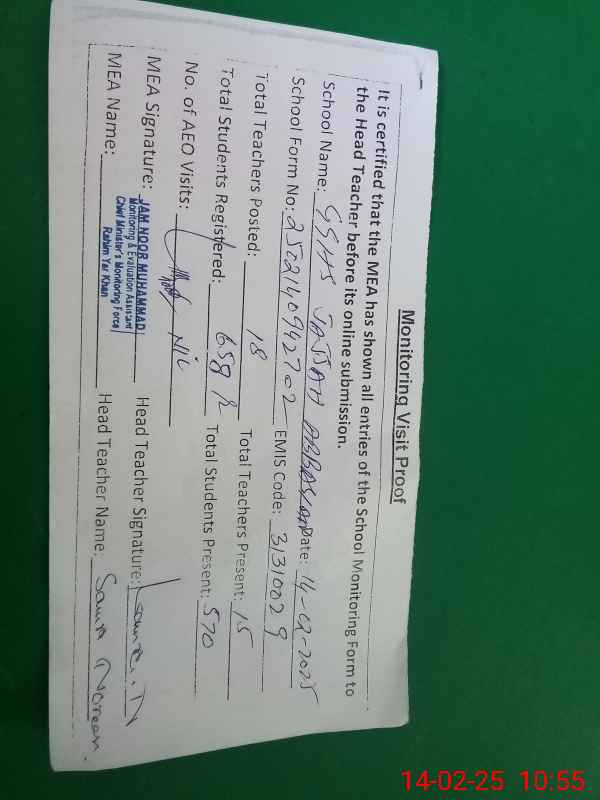 Monitoring Visit Proof
It is certified that the MEA has shown all entries of the School Monitoring Form to
the Head Teacher before its online submission.
School Name: GGHS JAJJAH ABBASIAN Date: 14-02-2025
School Form No: 2502140942702 EMIS Code: 31310029
Total Teachers Posted: 18 Total Teachers Present: 15
Total Students Registered: 658 Total Students Present: 570
No. of AEO Visits: Nil
MEA Signature: Head Teacher Signature:
JAM NOOR MUHAMMAD
Monitoring & Evaluation Assistant
Chief Minister's Monitoring Force
Rahim Yar Khan
MEA Name: Head Teacher Name: Noreen
14-02-25 10:55